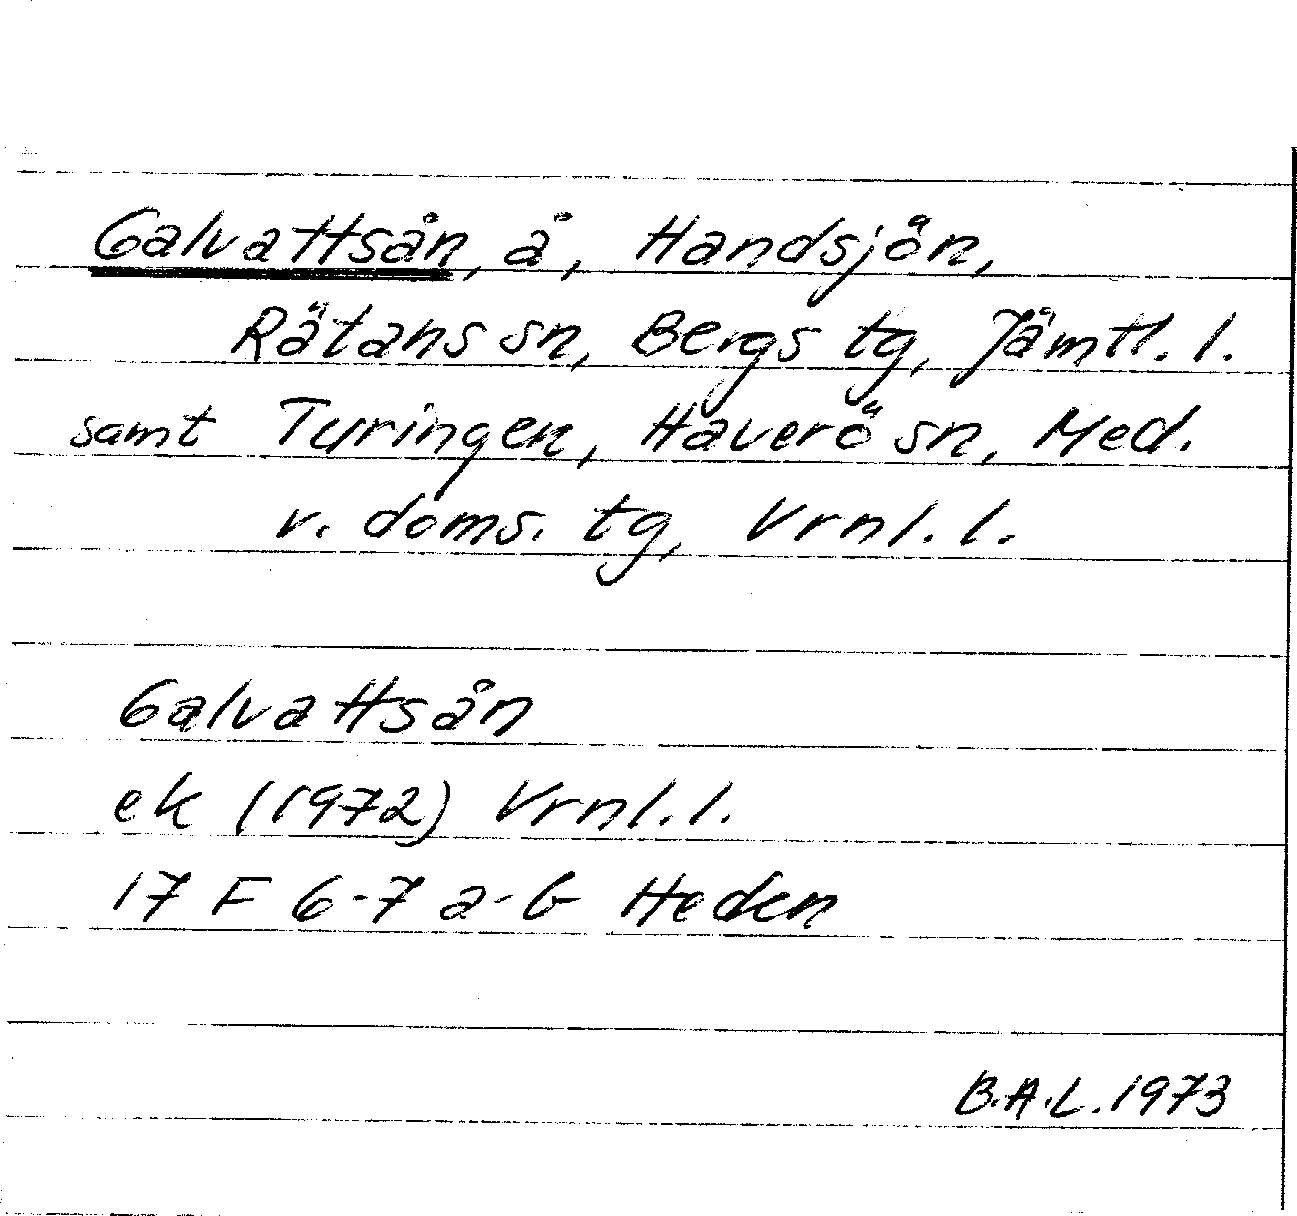 Galvattsån, å, Handsjön,
Rätans sn, Bergs tg, Jämtl. l.
samt Turingen, Haverö sn, Med.
v. doms. tg, Vrnl. l.
Galvattsån
ek (1972) Vrnl. l.
17 F 6-7 a-b Heden
B.A.L. 1973